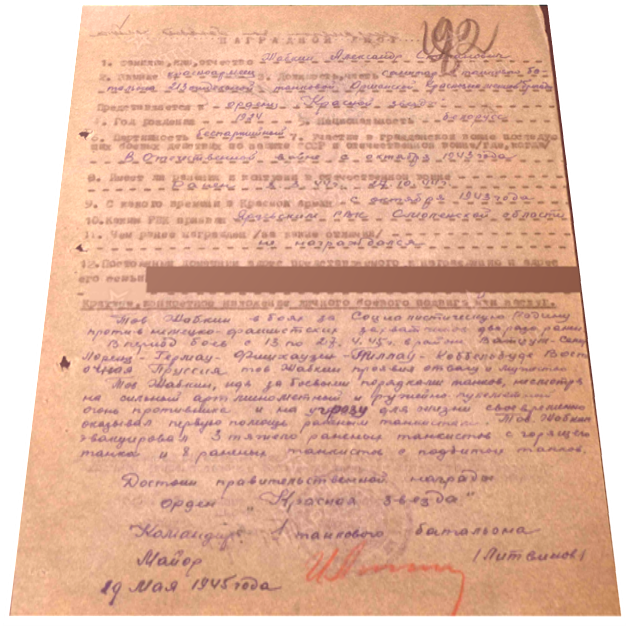 192
НАГРАДНОЙ ЛИСТ
1. Фамилия, имя, отчество Жабкин Александр
2. Звание красноармеец 3. Должность, часть санитар
танковой Оршанской
Представляется к ордену "Красная звезда"
4. Год рождения 1924 5. Национальность белорус
6. Партийность беспартийный 7. Участие в гражданской войне
боевых действиях по защите СССР и отечественной войне /где, когда/
В Отечественной войне с октября 1943 года
8. Имеет ли ранения и контузии в отечественной войне
9. С какого времени в Красной армии с октября 1943 года
10. Каким РВК призван РВК Смоленской области
11. Чем ранее награжден /за какие отличия/
не награждался
12. Постоянный домашний адрес представляемого к награждению и адрес
его семьи
Краткое, конкретное изложение личного боевого подвига или заслуг.
Тов. Жабкин в боях за Социалистическую Родину
против немецко-фашистских захватчиков дважды ранен
В период боев с 13 по 27. 4. 45г. в районе
Гермау - Фишхаузен - Пиллау - Вост
очная Пруссия тов Жабкин проявил отвагу и мужество
Тов. Жабкин, идя за боевыми порядками танков, несмотря
на сильный арт минометный и ружейно-пулеметный
огонь противника и на угрозу для жизни своевременно
оказывал первую помощь раненым танкистам. Тов. Жабкин
эвакуировал 3 тяжело раненых танкистов с горящего
танка и 8 раненых танкистов с подбитых танков.
Достоин правительственной награды
орден "Красная звезда"
Командир 1 танкового батальона
Майор /Литвинов/
19 Мая 1945 года